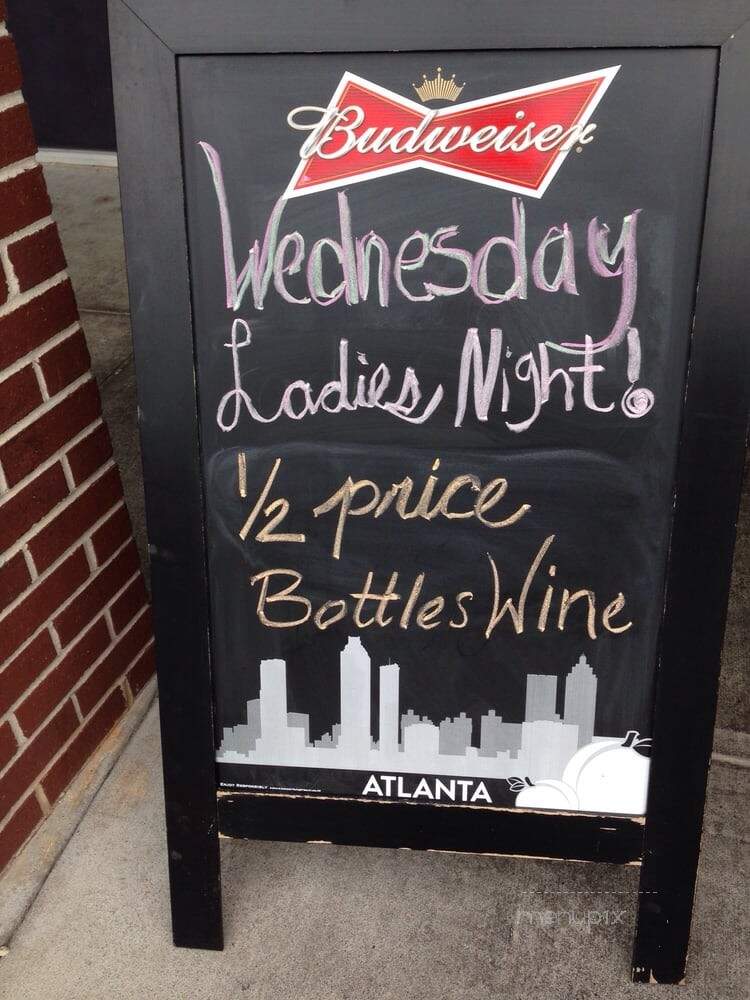 Budweiser
Wednesday
Ladies Night!
1/2 price
Bottles Wine
ATLANTA
ENJOY RESPONSIBLY
menupix